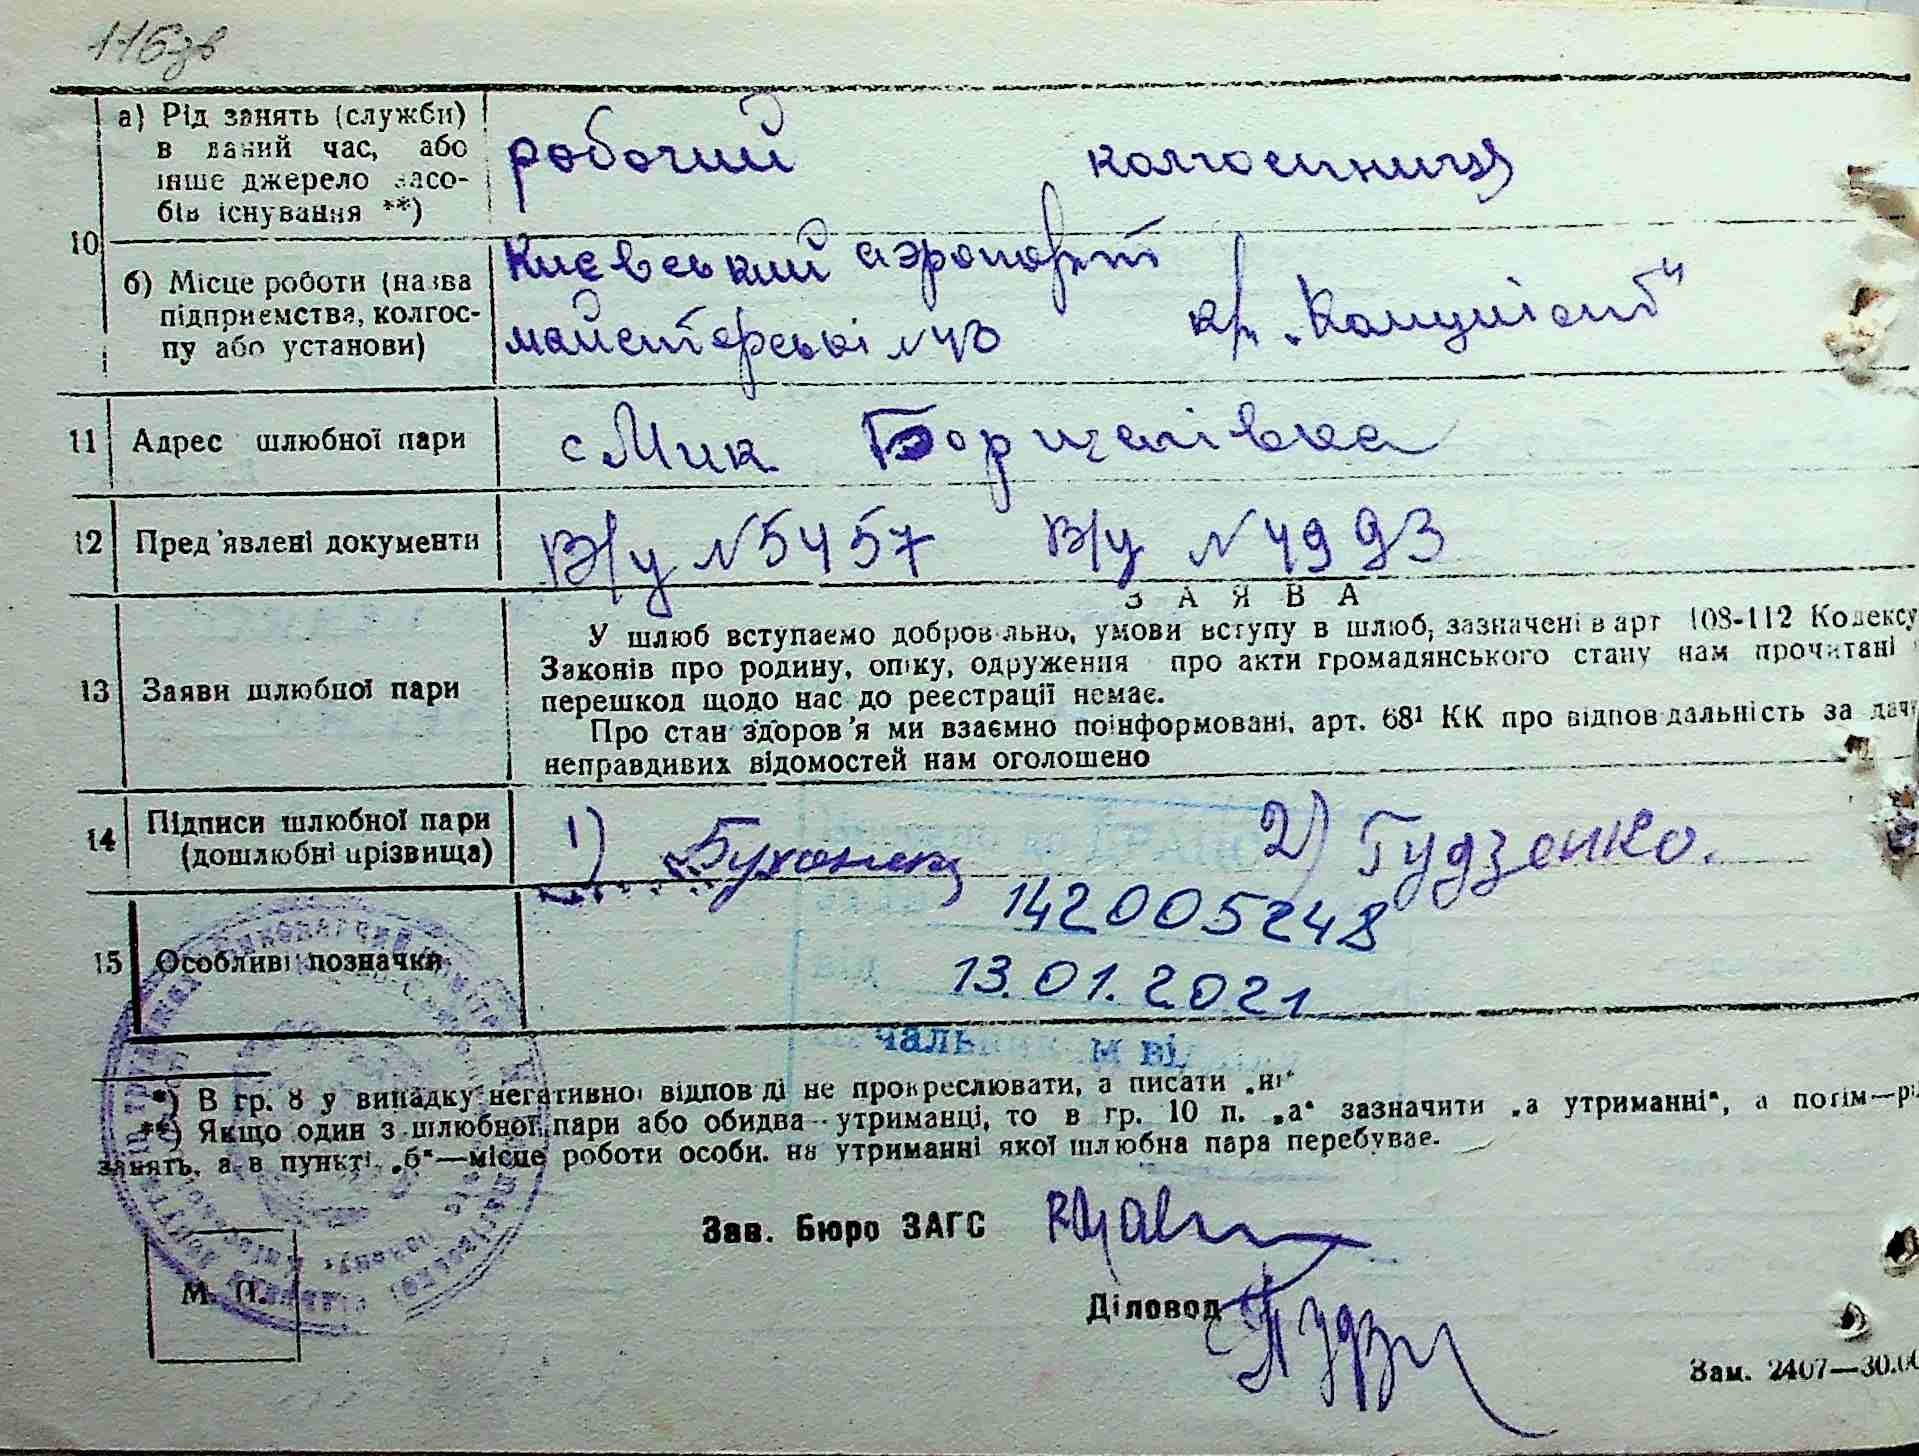 116зв
а) Рід занять (служби)
в даний час, або
інше джерело засо-
бів існування **)
робочий колгоспниця
10
б) Місце роботи (назва
підприємства, колгос-
пу або установи)
Києвський аэропорт
майстерські №43 кр. „Комуніст"
11 Адрес шлюбної пари с Мик Борщагівка
12 Пред'явлені документи В/у №5457 В/у №4993
ЗАЯВА
13 Заяви шлюбної пари
У шлюб вступаемо добровільно, умови вступу в шлюб, зазначені в арт 108-112 Кодексу
Законів про родину, опіку, одруження про акти громадянського стану нам прочитані
перешкод щодо нас до реєстрації немає.
Про стан здоров'я ми взаємно поінформовані, арт. 68¹ КК про відповідальність за дачу
неправдивих відомостей нам оголошено
14 Підписи шлюбної пари
(дошлюбні прізвища)
1) Буханец 2) Гудзенко.
15 Особливі позначки
142005248
від 13.01.2021
Начальником відділу
*) В гр. 8 у випадку негативної відповіді не прокреслювати, а писати „ні"
**) Якщо один з шлюбної пари або обидва утриманці, то в гр. 10 п. „а" зазначити „а утриманні", а потім—рід
занять, а в пункті „б"—місце роботи особи, на утриманні якої шлюбна пара перебуває.
Зав. Бюро ЗАГС
М. П.
Діловод
Зам. 2407—30.00